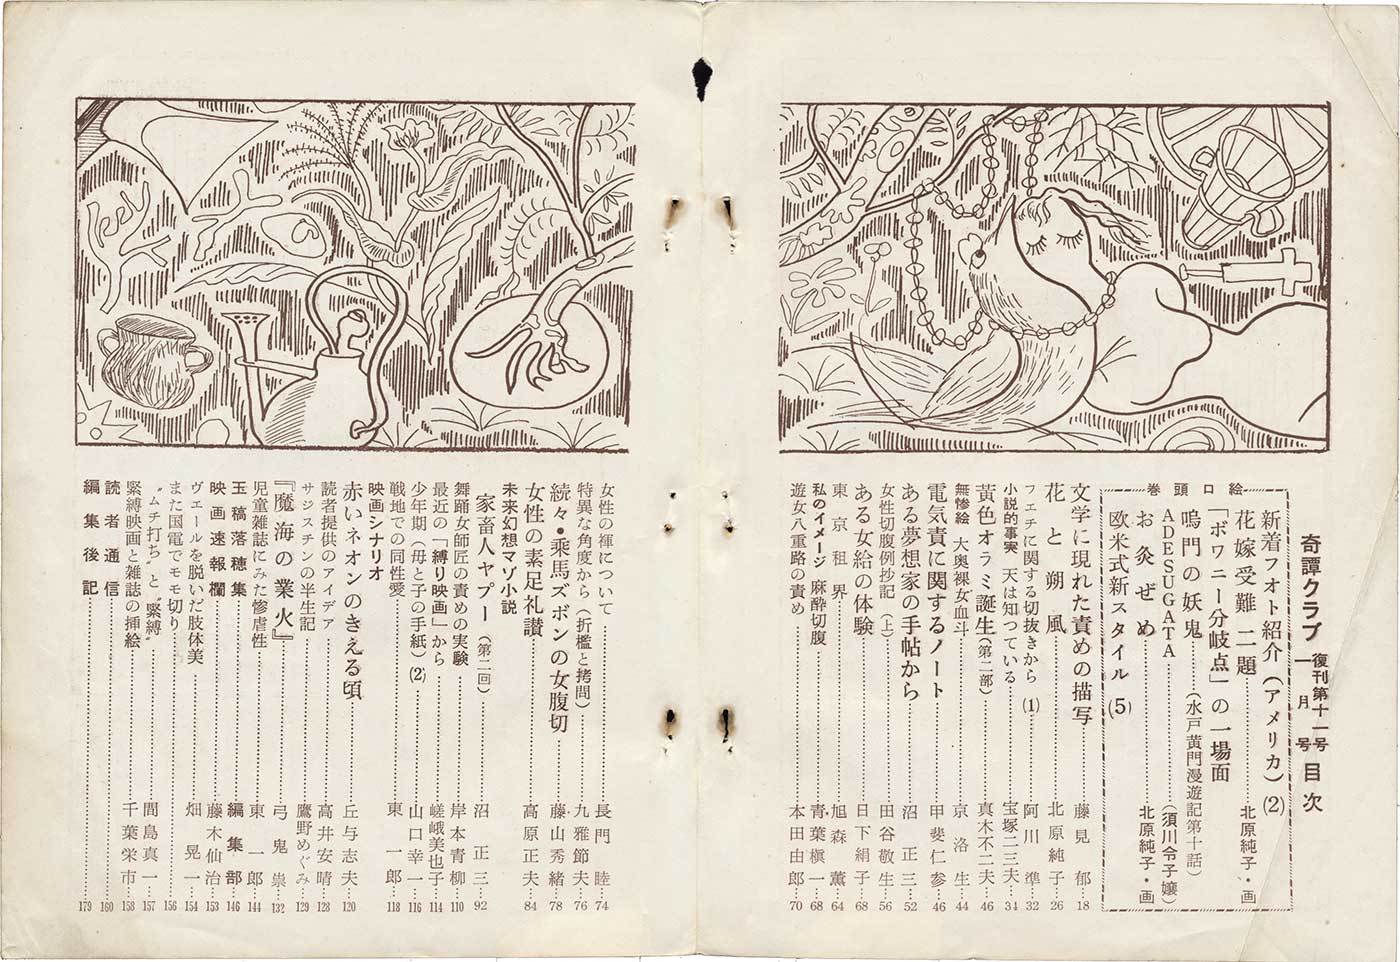 奇譚クラブ 復刊第十一号 一月号 目次
巻頭口絵
新着フオト紹介(アメリカ)(2)
花嫁受難 二題……北原純子・画
「ボワニー分岐点」の一場面
鳴門の妖鬼……(水戸黄門漫遊記第十話)
ADESUGATA……(須川令子嬢)
お灸ぜめ……北原純子・画
欧米式新スタイル(5)
文学に現れた責めの描写……藤見郁…18
花と朔風……北原純子…26
フェチに関する切抜きから(1)……阿川準…32
小説的事実 天は知つている……宝塚二三夫…34
黄色オラミ誕生(第二部)……真木不二夫…46
無惨絵 大奥裸女血斗……京洛生…44
電気責に関するノート……甲斐仁参…46
ある夢想家の手帖から……沼正三…52
女性切腹例抄記(上)……田谷敬生…56
ある女給の体験……日下絹子…68
東京租界……旭森薫…64
私のイメージ 麻酔切腹……青葉槇一…68
遊女八重路の責め……本田由郎…70
女性の褌について……長門睦…74
特異な角度から(折檻と拷問)……九雅節夫…76
続々・乗馬ズボンの女腹切……藤山秀緒…78
女性の素足礼讃……高原正夫…84
未来幻想マゾ小説
家畜人ヤプー(第二回)……沼正三…92
舞踊女師匠の責めの実験……岸本青柳…110
最近の「縛り映画」から……嵯峨美也子…114
少年期(母と子の手紙)(2)……山口幸一…116
戦地での同性愛……東一郎…118
映画シナリオ
赤いネオンのきえる頃……丘与志夫…120
読者提供のアイデア……高井安晴…128
サジスチンの半生記……鷹野めぐみ…129
『魔海の業火』……弓鬼崇…132
児童雑誌にみた惨虐性……東一郎…144
玉稿落穂集……編集部…146
映画速報欄……藤木仙治…153
ヴェールを脱いだ肢体美……畑晃一…154
また国電でモモ切り……156
〝ムチ打ち〟と〝緊縛〟……間島真一…157
緊縛映画と雑誌の挿絵……千葉栄市…158
読者通信……160
編集後記……179